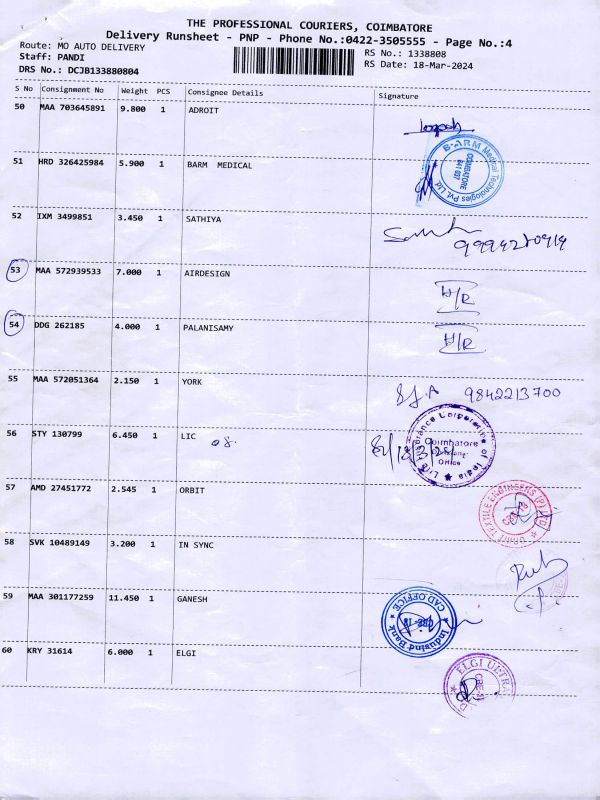 THE PROFESSIONAL COURIERS, COIMBATORE
Delivery Runsheet - PNP - Phone No.:0422-3505555 - Page No.:4
Route: MO AUTO DELIVERY RS No.: 1338808
Staff: PANDI RS Date: 18-Mar-2024
DRS No.: DCJB133880804
S No Consignment No Weight PCS Consignee Details Signature
50 MAA 703645891 9.800 1 ADROIT
51 HRD 326425984 5.900 1 BARM MEDICAL
S-ARM Medical Technologies Pvt. Ltd. COIMBATORE 641 037
52 IXM 3499851 3.450 1 SATHIYA
53 MAA 572939533 7.000 1 AIRDESIGN
54 DDG 262185 4.000 1 PALANISAMY
55 MAA 572051364 2.150 1 YORK
9842213700
56 STY 130799 6.450 1 LIC 08.
Life Insurance Corporation of India Coimbatore Office
57 AMD 27451772 2.545 1 ORBIT
58 SVK 10489149 3.200 1 IN SYNC
59 MAA 301177259 11.450 1 GANESH
Indusind Bank CAD OFFICE CBE-18
60 KRY 31614 6.000 1 ELGI
ELGI ULTRA